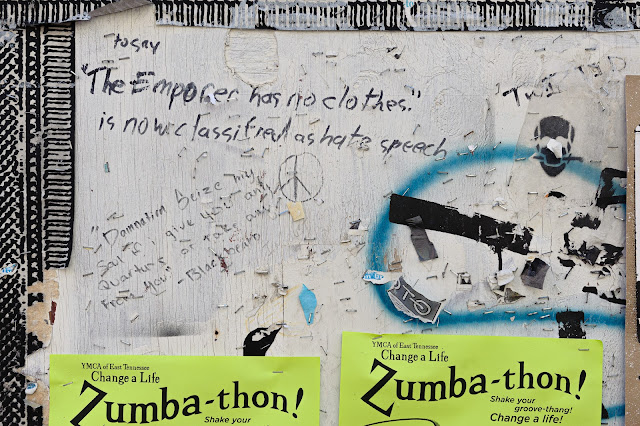 to say
"The Emporer has no clothes."
is now classified as hate speech
"Damnation Seize my
Soul if I give you any
Quarters or take any
From you"
YMCA of East Tennessee
Change a Life
Zumba-thon!
Shake your
YMCA of East Tennessee
Change a Life
Zumba-thon!
Shake your
groove-thang!
Change a life!